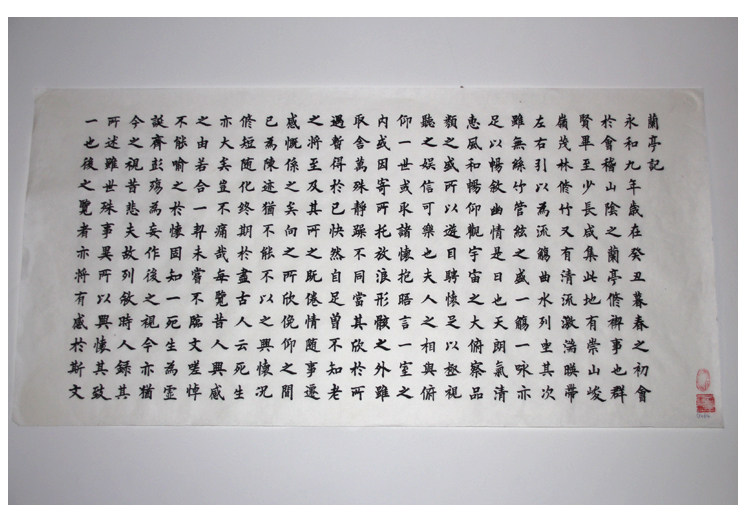 蘭亭記
永和九年歲在癸丑暮春之初會
於會稽山陰之蘭亭脩禊事也群
賢畢至少長咸集此地有崇山峻
嶺茂林脩竹又有清流激湍暎帶
左右引以為流觴曲水列坐其次
雖無絲竹管絃之盛一觴一詠亦
足以暢敘幽情是日也天朗氣清
惠風和暢仰觀宇宙之大俯察品
類之盛所以遊目騁懷足以極視
聽之娛信可樂也夫人之相與俯
仰一世或取諸懷抱晤言一室之
內或因寄所托放浪形骸之外雖
取舍萬殊靜躁不同當其欣於所
遇暫得於已快然自足曾不知老
之將至及其所之既倦情隨事遷
感慨係之矣向之所欣俛仰之間
已為陳迹猶不能不以之興懷況
脩短隨化終期於盡古人云死生
亦大矣豈不痛哉每覽昔人興感
之由若合一契未嘗不臨文嗟悼
不能喻之於懷固知一死生為虛
誕齊彭殤為妄作後之視今亦猶
今之視昔悲夫故列敘時人錄其
所述雖世殊事異所以興懷其致
一也後之覽者亦將有感於斯文